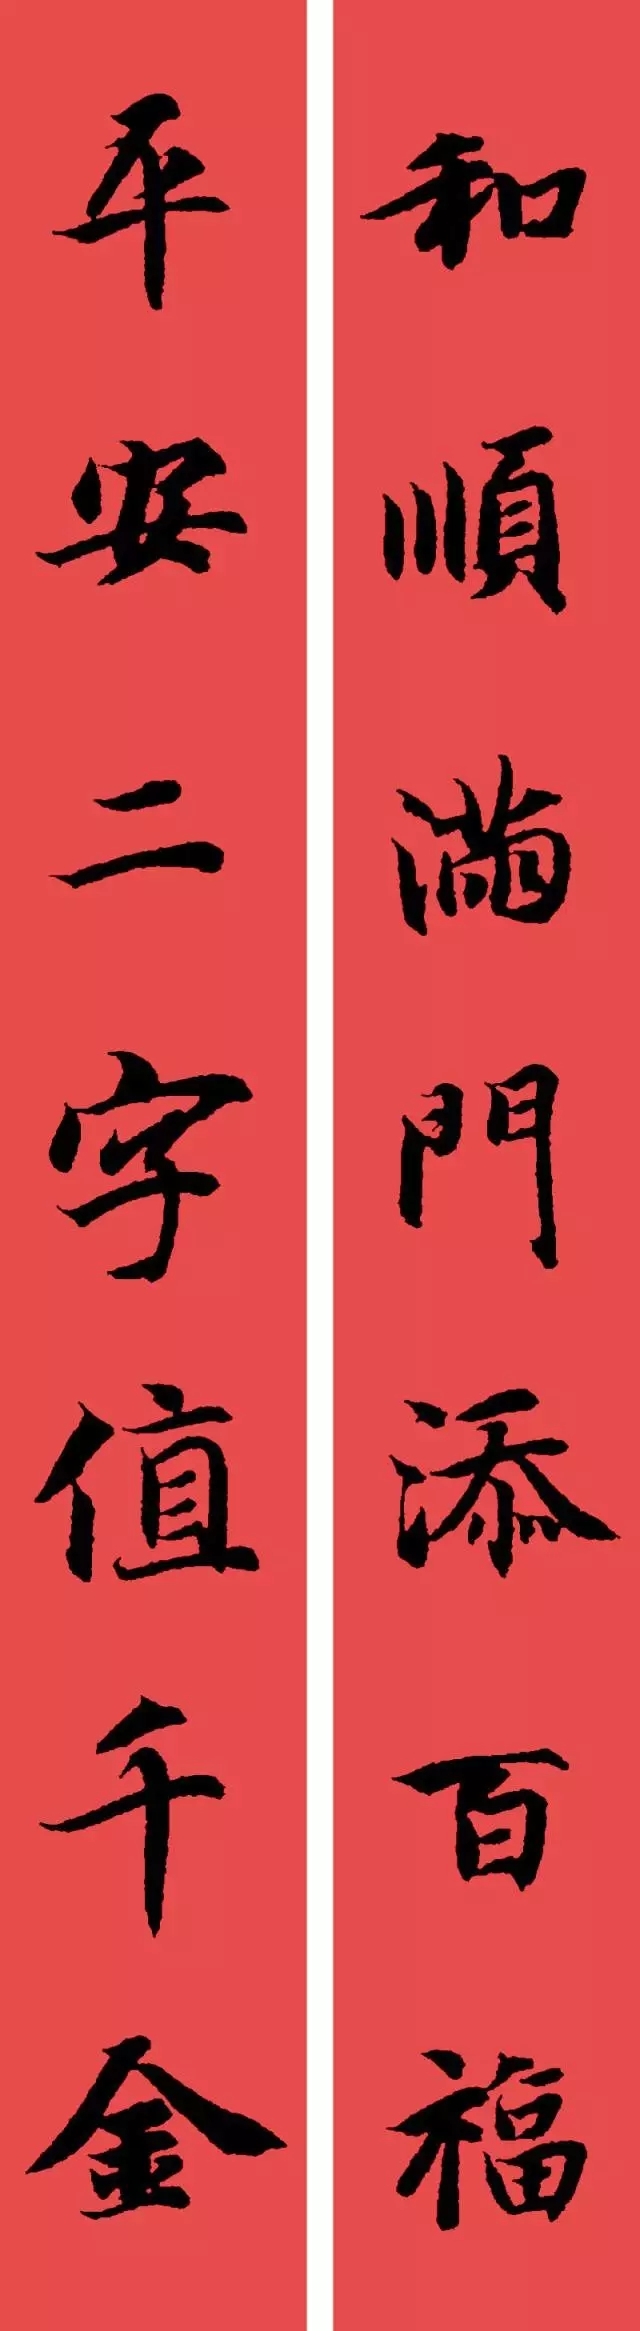 和順滿門添百福
平安二字值千金